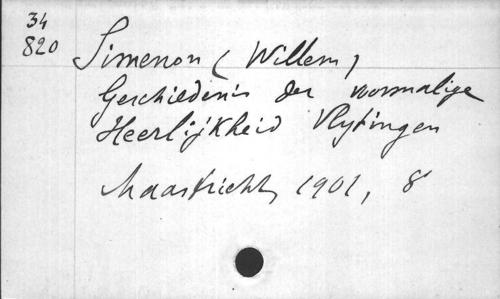 34
820
Simenon (Willem)
Geschiedenis der voormalige
Heerlijkheid Vlytingen
Maastricht, 1901, 8°